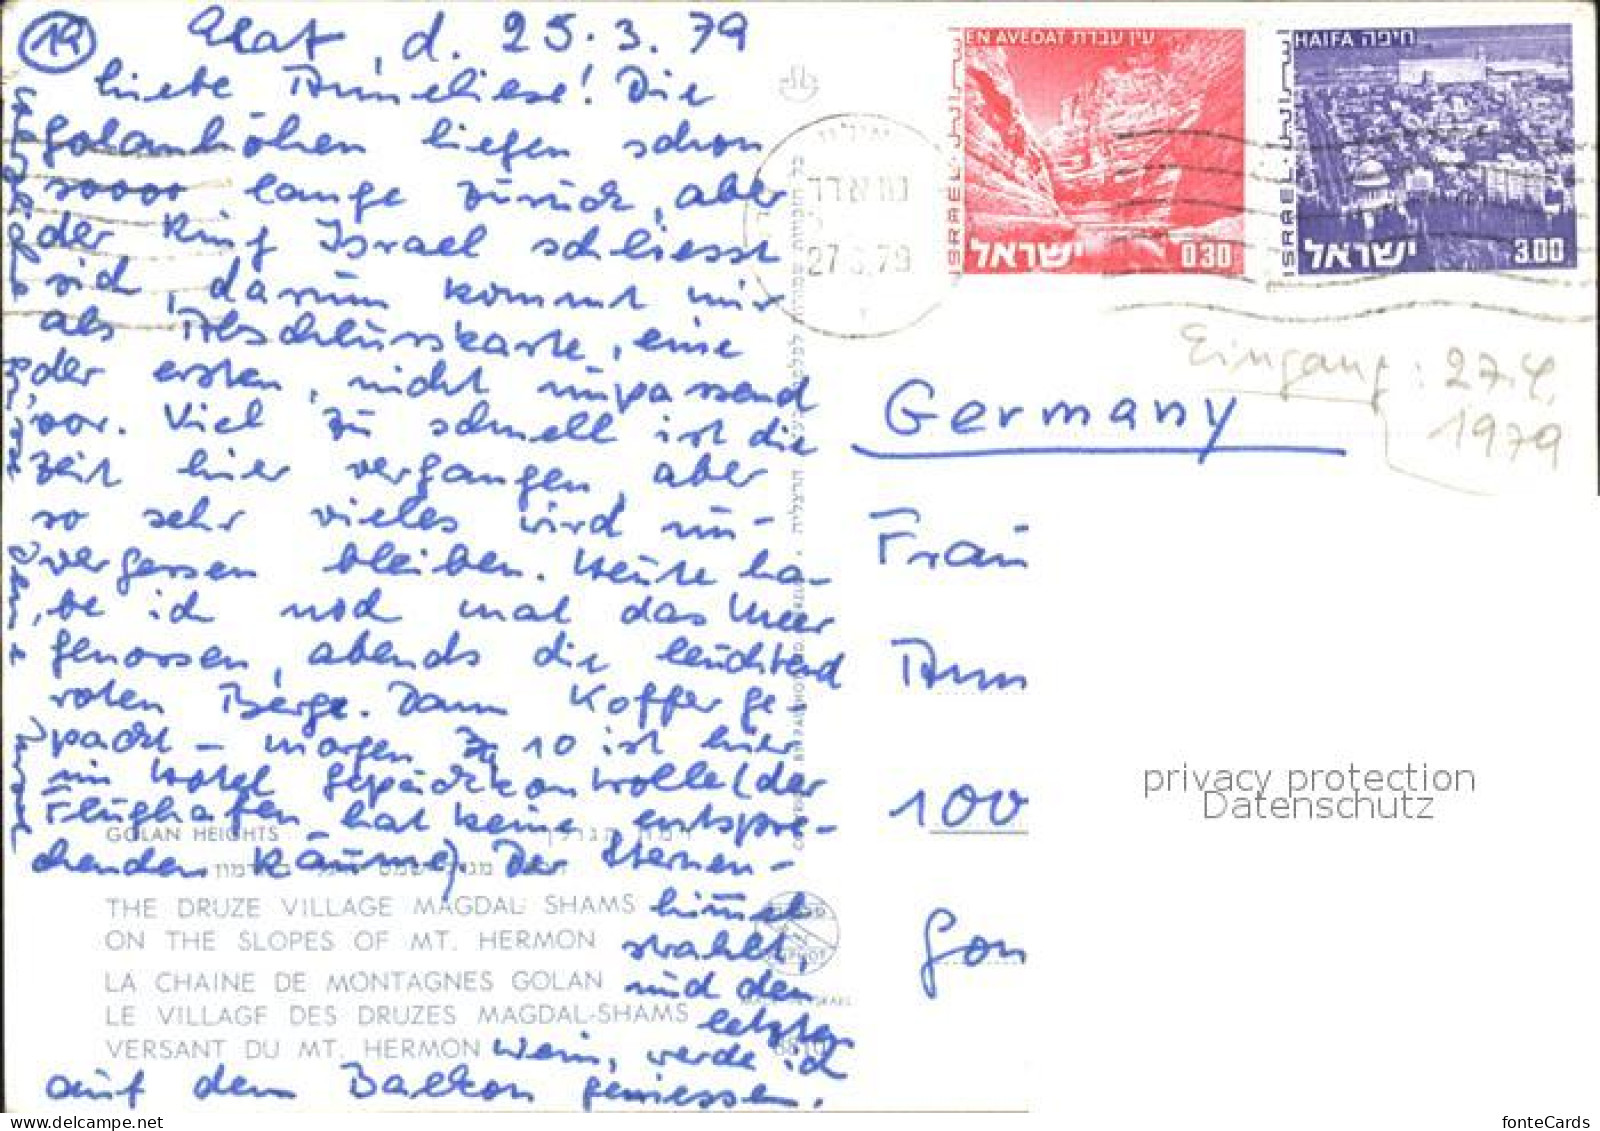 19
Elat, d. 25.3.79
Liebe Anneliese! Die
Golanhöhen liegen schon
soooo lange zurück, aber
der Ring Israel schliesst
sich, darum kommt mir
als Abschlusskarte, eine
der ersten, nicht unpassend
vor. Viel zu schnell ist die
Zeit hier vergangen, aber
so sehr vieles wird un-
vergessen bleiben. Heute ha-
be ich noch mal das Meer
genossen, abends die leuchtend
roten Berge. Dann Koffer ge-
packt – morgen 10 ist hier
im Hotel Gepäckkontrolle (der
Flughafen hat keine entspre-
chenden Räume). Der Sternen-
himmel
strahlt,
und den
letzten
Wein, werde ich
auf dem Balkon geniessen.
GOLAN HEIGHTS
THE DRUZE VILLAGE MAGDAL SHAMS
ON THE SLOPES OF MT. HERMON
LA CHAINE DE MONTAGNES GOLAN
LE VILLAGE DES DRUZES MAGDAL-SHAMS
VERSANT DU MT. HERMON
EN AVEDAT עין עבדת
ISRAEL
ישראל 0.30
HAIFA חיפה
ISRAEL
ישראל 3.00
27.3.79
Eingang: 27.4.
1979
Germany
Frau
Ann
100
Gon
privacy protection
Datenschutz
fonteCards